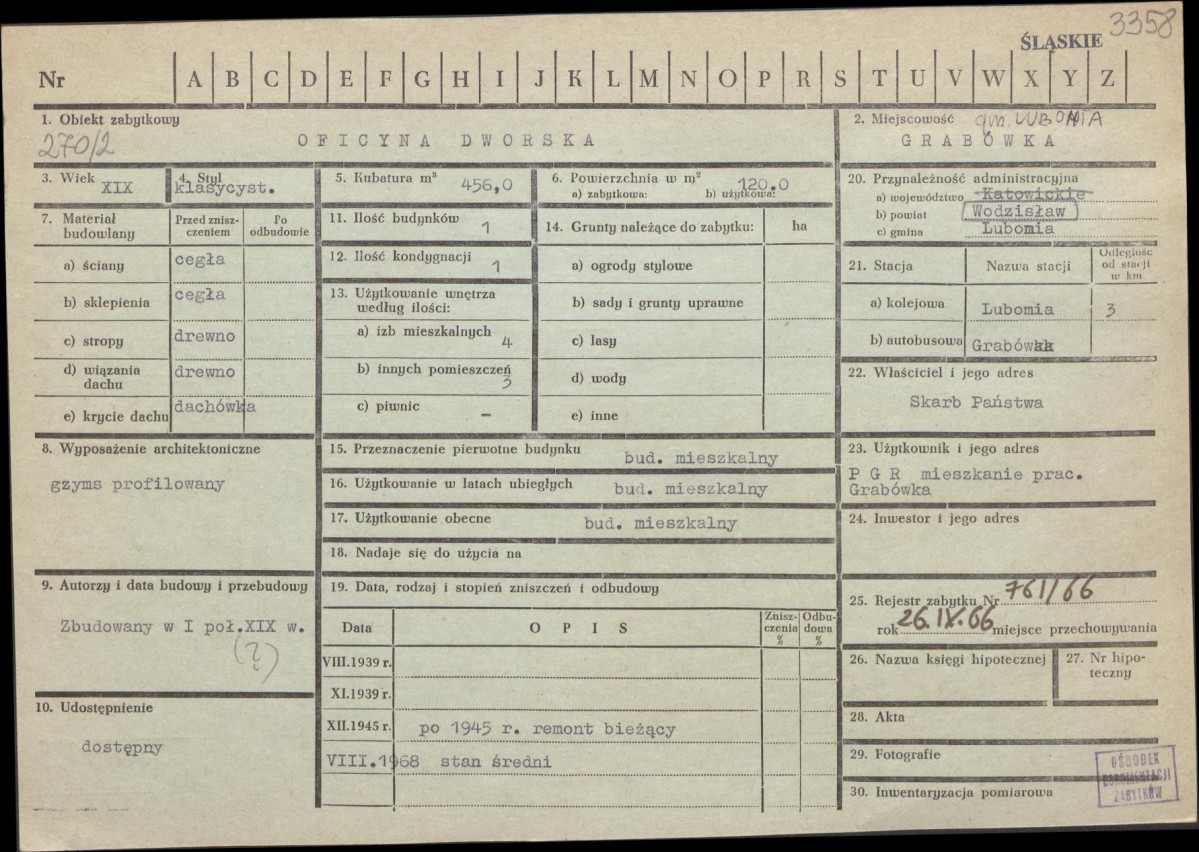 3358
ŚLĄSKIE
Nr A B C D E F G H I J K L M N O P R S T U V W X Y Z
1. Obiekt zabytkowy
270/2
OFICYNA DWORSKA
2. Miejscowość gm. LUBOMIA
GRABÓWKA
3. Wiek XIX
4. Styl klasycyst.
5. Kubatura m³ 456,0
6. Powierzchnia w m² 120.0
a) zabytkowa: b) użytkowa:
20. Przynależność administracyjna
a) województwo Katowickie
b) powiat Wodzisław
c) gmina Lubomia
7. Materiał budowlany
Przed zniszczeniem
Po odbudowie
a) ściany cegła
b) sklepienia cegła
c) stropy drewno
d) wiązania dachu drewno
e) krycie dachu dachówka
11. Ilość budynków 1
12. Ilość kondygnacji 1
13. Użytkowanie wnętrza według ilości:
a) izb mieszkalnych 4
b) innych pomieszczeń 3
c) piwnic –
14. Grunty należące do zabytku: ha
a) ogrody stylowe
b) sady i grunty uprawne
c) lasy
d) wody
e) inne
21. Stacja
Nazwa stacji
Odległość od stacji w km
a) kolejowa Lubomia 3
b) autobusowa Grabówka
22. Właściciel i jego adres
Skarb Państwa
8. Wyposażenie architektoniczne
gzyms profilowany
15. Przeznaczenie pierwotne budynku bud. mieszkalny
16. Użytkowanie w latach ubiegłych bud. mieszkalny
17. Użytkowanie obecne bud. mieszkalny
18. Nadaje się do użycia na
23. Użytkownik i jego adres
P G R mieszkanie prac.
Grabówka
24. Inwestor i jego adres
9. Autorzy i data budowy i przebudowy
Zbudowany w I poł.XIX w.
(?)
10. Udostępnienie
dostępny
19. Data, rodzaj i stopień zniszczeń i odbudowy
Data OPIS Zniszczenia % Odbudowa %
VIII.1939 r.
XI.1939 r.
XII.1945 r. po 1945 r. remont bieżący
VIII.1968 stan średni
25. Rejestr zabytku Nr 761/66
rok 26.IX.66 miejsce przechowywania
26. Nazwa księgi hipotecznej
27. Nr hipoteczny
28. Akta
29. Fotografie
30. Inwentaryzacja pomiarowa
OŚRODEK
DOKUMENTACJI
ZABYTKÓW